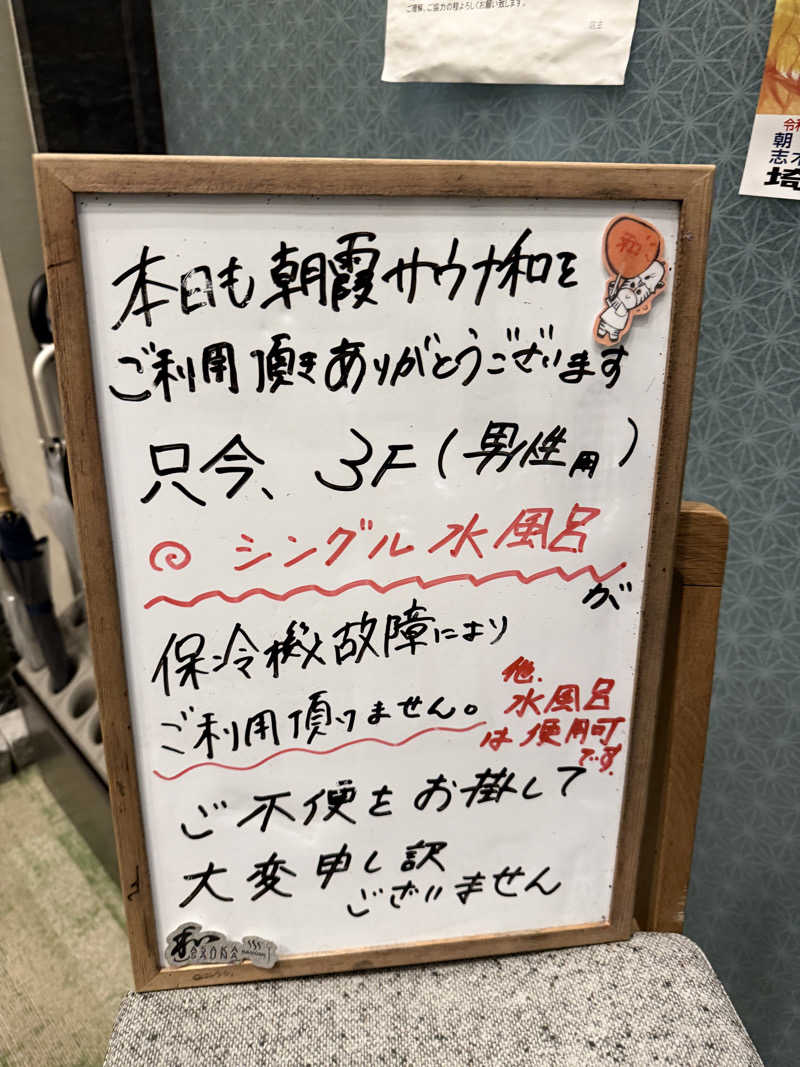 ご理解、ご協力の程よろしくお願い致します。
店主
朝
志木
埼
本日も朝霞サウナ和を
和
ご利用頂きありがとうございます
只今、3F(男性用)
シングル水風呂
が
保冷機故障により
ご利用頂けません。
他、
水風呂
は使用可
です。
ご不便をお掛して
大変申し訳
ございません